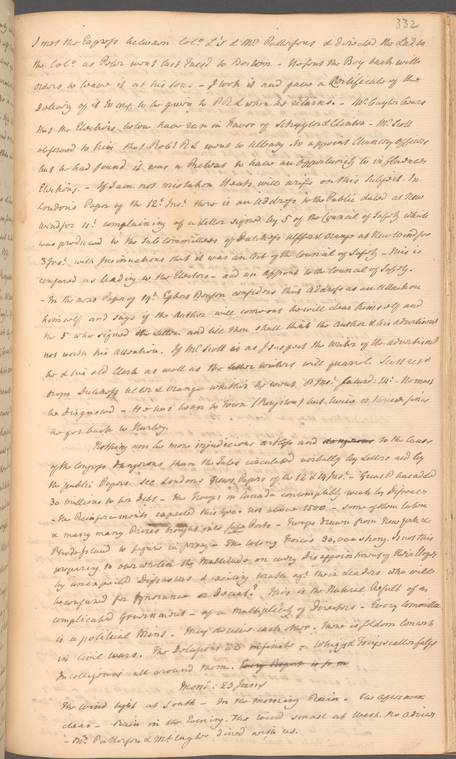 332
I met the Express between Col. L's & Mr Pattersons & directed the Lad to
the Col. as Peter went last Tuesd to Boston - He sent the Boy back with
orders to leave it at his Sons - I took it and gave a Certificate of the
Delivery of it to day, to be given to P R L when he returns. - Mr Gaylor hears
that the Elections below have run in Favor of Schuyler & Clinton - Mr Scott
affirmed to him that Rob R L went to Albany to appoint Chancery Officers
but he had found it was a Pretext to have an Opportunity to influence
Elections. - If I am not mistaken Heats will arise on this Subject. In
Loudon's Paper of the 12 Inst there is an Address to the Public dated at New
Windsor 10. complaining of a Letter signed by 5 of the Council of Safety which
was produced to the Sub Committees of Dutchess Ulster & Orange at New Windsor
3 Inst. with Insinuations that it was an Act of the Council of Safety - This is
censured as leading to the Electors - and an Affront to the Council of Safety.
- In the next Paper of 19. Egbert Benson considers this Address as an Attack on
himself and says if the Author will come out he will clear himself and
the 5 who signed the Letter and till then shall think the Author & his advertisement
not worth his Attention. If Mr Scott is as I suspect the Writer of the advertisement
he & his old Clerk as well as the Letter writers will quarrel.
from Dutchess Ulster & Orange whether he wins or not. He must
be disgraced - He was hear in Town (Kingston) but
he got back to Hurley.
Nothing can be more injudicious artless and dangerous to the Cause
of the Congress than the Tales circulated verbally by Letters and by
the public Papers. See Loudon's Papers of the 12 & 19 Inst. - Great B has added
30 millions to her Debt - the Troops in Canada contemptibly weak by Diseases
- the Reinforcements expected this year not above 1500 - some of them taken
& many many Prizes brought into all Ports - Troops drawn from New York &
Rhode Island to figure in Jersey - The Colony Troops 30,000 strong. Is not this
preparing to overwhelm the Multitude on every Disappointment of their Hopes
by unexpected Disasters & raising Wrath agt their Leaders who will
be censured for Ignorance or Deceit. This is the Natural Result of a
complicated Government - of a Multiplicity of Directors - Every Committee
is a political Mint - They deceive each other. There is seldom Concert
in civil Wars. The Delusions are infinite - Whigs & Tories scatter falsify
Intelligences all around them. Every Report is from
Mond: 23 June
The Wind light at South - In the Morning Rain - The afternoon
clear - Rain in the Evening. The Wind small at West. No Advices
- Mr Patterson & Mr Gaylor dined with us.